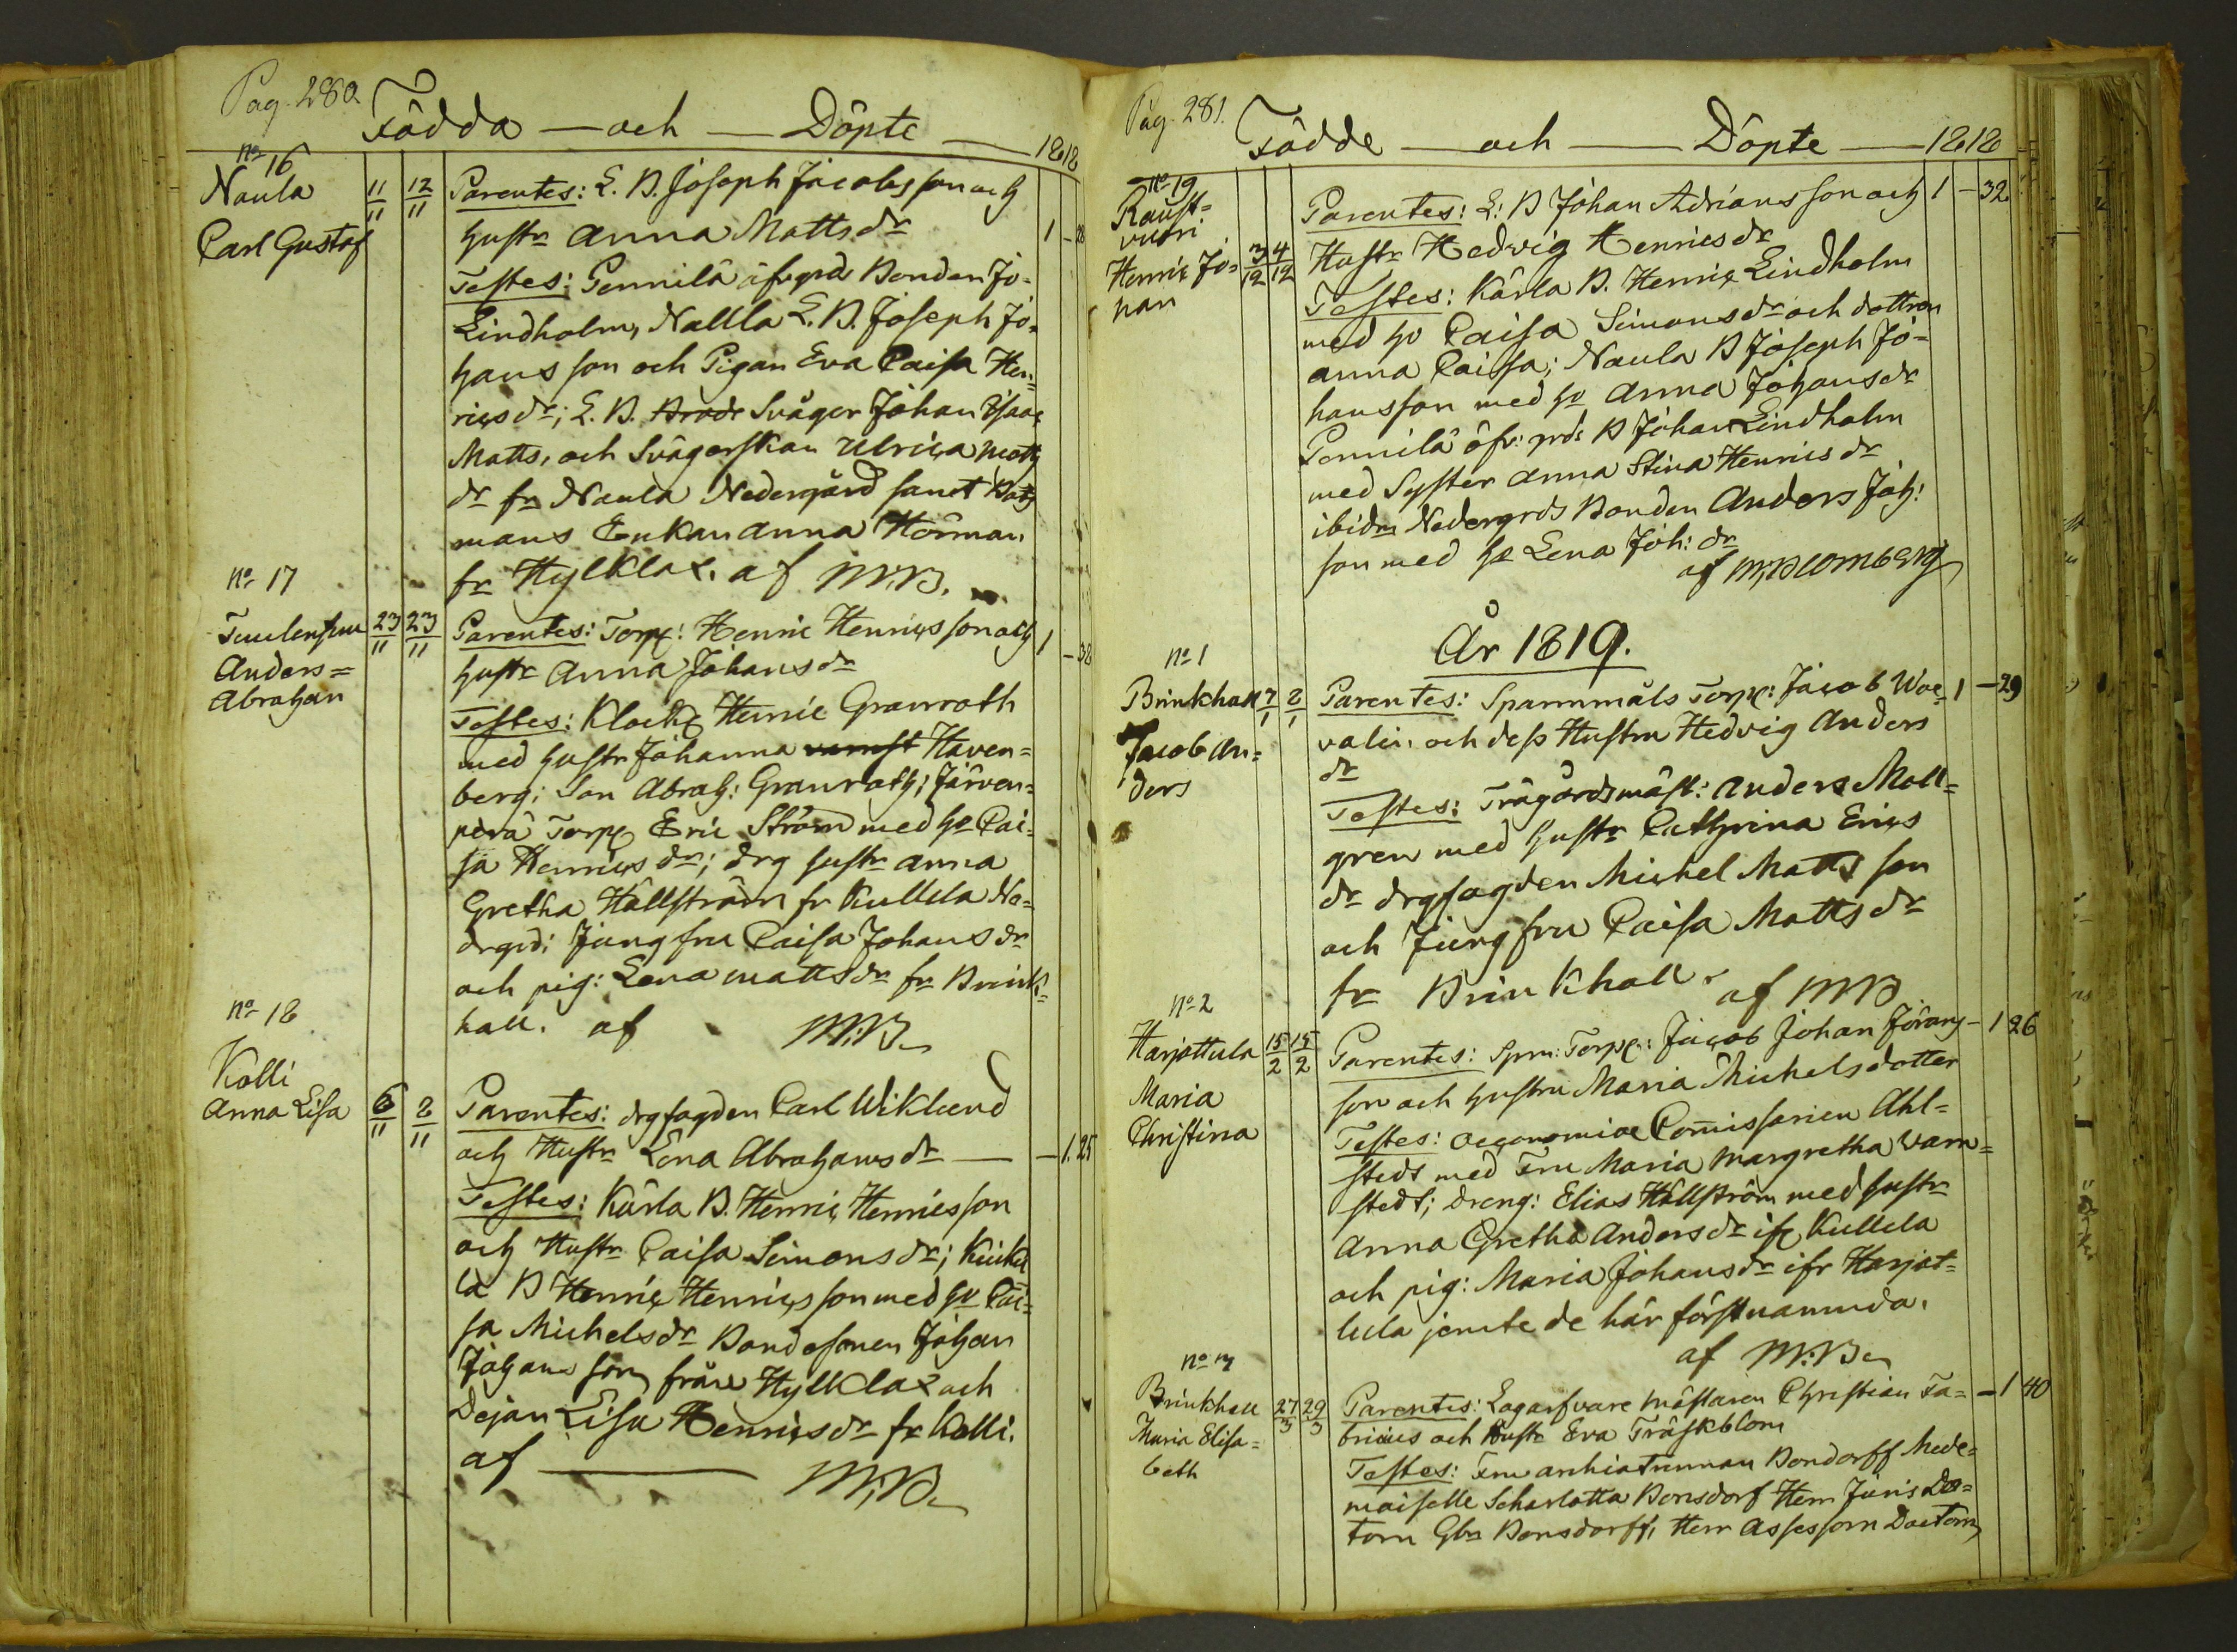 Pag. 280.
Födda — och — Döpte — 1818
no 16
Naula
Carl Gustaf
11/11 12/11
Parentes: L. B. Joseph Jacobsson och
hustr Anna Mattsdr 1 - 28
Testes: Pennilä öfvgrds Bonden Jo-
Lindholm, Nallla L. B. Joseph Jo-
hansson och Pigan Eva Caisa Hen-
ricsdr; L. B. Svåger Johan Isaac
Matts. och Svägerskan Ulrica Matts
dr fr Naula Nedergård samt
mans Enkan Anna Hörman
fr Hylklax. af M.B.
no 17
Anders=
Abraham
23/11 23/11
Parentes: Torp: Henric Henricsson och 1 - 38
hustr Anna Johansdr
Testes: Klock Henric Granroth
med hustr Johanna Haven=
berg; Son Abrah: Granroth; Järven=
perä Torp Eric Ström med ho Cai=
sa Henricsdr; drg hustr Anna
Gretha Hällström fr Kullila Ne=
drgrd; Jungfru Caisa Johansdr
och pig: Lena Mattsdr fr Brink=
hall. af M:B.
no 18
Kolli
Anna Lisa
6/11 8/11
Parentes: drgfogden Carl Wiklund
och Hustr Lena Abrahamsdr — - 1.25
Testes: Kärla B. Henric Henricsson
och Hustr Caisa Simonsdr;
la B Henric Henricsson med ho Cai=
sa Michelsdr Bondesonen Johan
Johansson från Hylklax och
Dejan Lisa Henricsdr fr Kolli.
af — M.B.
Pag. 281.
Födde — och — Döpte — 1818
no 19
Raust=
vuori
Henric Jo=
han
3/12 4/12
Parentes: L: B Johan Adriansson och 1 - 32
Hustr Hedvig Henricsdr
Testes: Kärla B. Henric Lindholm
med ho Caisa Simonsdr och dottren
Anna Caisa; Naula B Joseph Jo=
hansson med ho Anna Johansdr
Pennilä öfv: grds B Johan Lindholm
med Syster Anna Stina Henricsdr
ibidm Nedergrds Bonden Anders Joh:
son med ho Lena Joh: dr
af M; Blomberg
År 1819.
no 1
Brinkhall
Jacob An=
ders
7/1 8/1
Parentes: Spannmåls Torp: Jacob Wae- 1 - 29
valin. och dess Hustru Hedvig Anders
dr
Testes: Trägårdsmäst: Anders Moll=
gren med hustr Cathrina Erics
dr drgfogden Michel Mattsson
och Jungfru Caisa Mattsdr
fr Brinkhall. af MB
no 2
Harjattula
Maria
Christina
15/2 15/2
Parentes: Spm: Torp: Jacob Johan Jörans- 1 26
son och hustru Maria Michelsdotter
Testes: Oeconomiae Comissarien Ahl=
stedt med Fru Maria Margretha Varn=
stedt; Dreng: Elias Hällström med hustr
Anna Gretha Andersdr ifr Kullila
och pig: Maria Johansdr ifr Harjat=
lula jemte de här förstnämnda.
af M:B.
no 3
Brinkhall
Maria Elisa=
beth
27/3 29/3
Parentes: Lagarfvare mästaren Christian Fa= - 1 40
bricius och Hustr Eva Träskblom
Testes: Fru Archiatrinnan Bondorff Made=
moiselle Scharlotta Bonsdorf Herr Juris Doc=
torn Gbr Bonsdorff, Herr Assessorn Doctorn